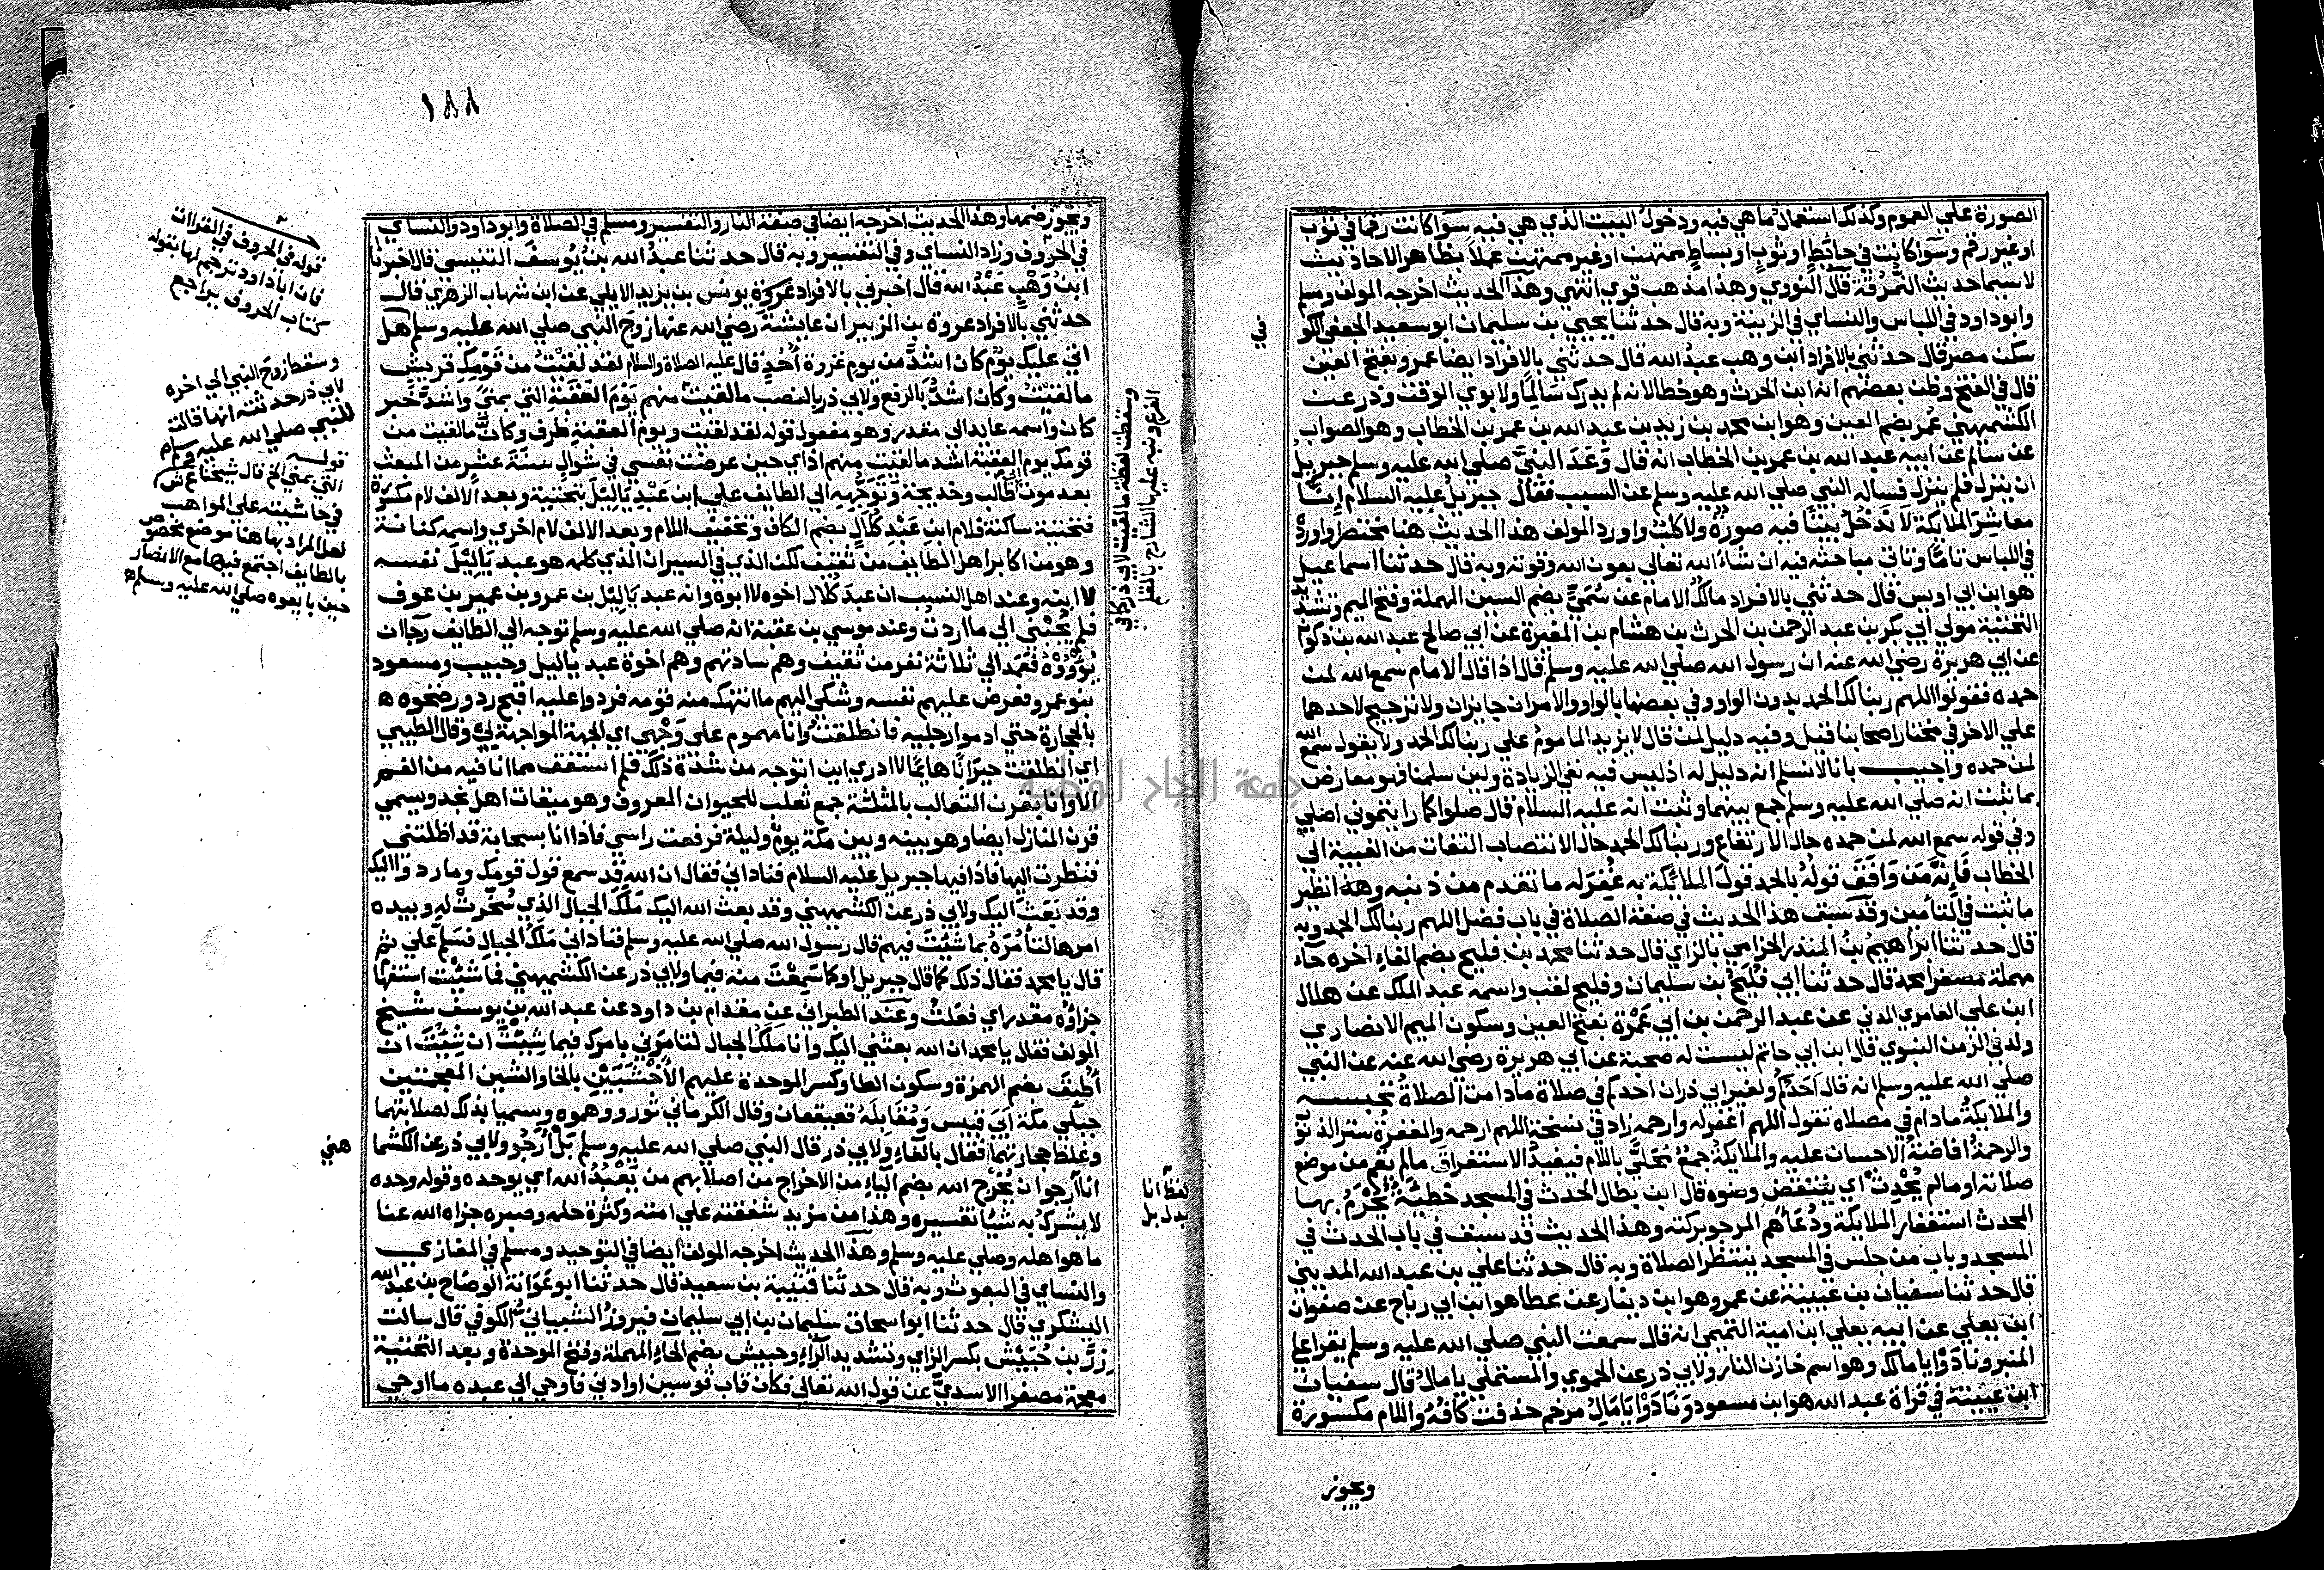 الصورة علي العموم وكذلك استعمال ما هي فيه ودخول البيت الذي هي فيه سوا كانت رقما في ثوب
او غير رقم وسوا كانت في حائط او ثوب او بساط ممتهن او غير ممتهن عملا بظاهر الاحاديث
لا سيما حديث النمرقة قال النووي وهذا مذهب قوي انتهي وهذا الحديث اخرجه المولف ومسلم
وابو داود في اللباس والنساي في الزينة وبه قال حدثنا يحيي بن سليمان ابو سعيد الجعفي الكو
سكن مصر قال حدثني بالافراد ابن وهب عبد الله قال حدثني بالافراد ايضا عمرو بفتح العين
قال في الفتح وظن بعضهم انه ابن الحرث وهو خطا لانه لم يدرك سالما ولابوي الوقت وذر عن
الكشميهني عمر بضم العين وهو ابن محمد بن زيد بن عبد الله بن عمر بن الخطاب وهو الصواب
عن سالم عن ابيه عبد الله بن عمر بن الخطاب انه قال وعد النبي صلي الله عليه وسلم جبريل
ان ينزل فلم ينزل فساله النبي صلي الله عليه وسلم عن السبب فقال جبريل عليه السلام انا
معاشر الملايكة لا ندخل بيتا فيه صورة ولا كلب واورد المولف هذا الحديث هنا مختصرا واورده
في اللباس تاما وتاتي مباحثه فيه ان شاء الله تعالي بعون الله وقوته وبه قال حدثنا اسماعيل
هو ابن ابي اويس قال حدثني بالافراد مالك الامام عن سمي بضم السين المهملة وفتح الميم وتشديد
التحتية مولي ابي بكر بن عبد الرحمن بن الحرث بن هشام بن المغيرة عن ابي صالح عبد الله بن ذكوان
عن ابي هريرة رضي الله عنه ان رسول الله صلي الله عليه وسلم قال اذا قال الامام سمع الله لمن
حمده فقولوا اللهم ربنا لك الحمد بدون الواو وفي بعضها بالواو والامران جايزان ولا ترجيح لاحدهما
علي الاخر في مختار اصحابنا قيل وفيه دليل لمن قال لا يزيد الماموم علي ربنا لك الحمد ولا يقول سمع الله
لمن حمده واجيب بانا لا نسلم انه دليل له اذ ليس فيه نفي الزيادة ولين سلمنا فهو معارض
بما ثبت انه صلي الله عليه وسلم جمع بينهما وثبت انه عليه السلام قال صلوا كما رايتموني اصلي
وفي قوله سمع الله لمن حمده حال الارتفاع وربنا لك الحمد حال الانتصاب التفات من الغيبة الي
الخطاب فانه من وافق قوله بالحمد قول الملائكة به غفر له ما تقدم من ذنبه وهذا نظير
ما ثبت في التأمين وقد سبق هذا الحديث في صفة الصلاة في باب فضل اللهم ربنا لك الحمد وبه
قال حدثنا ابراهيم بن المنذر الحزامي بالزاي قال حدثنا محمد بن فليح بضم الفاء اخره حاء
مهملة مصغرا محمد قال حدثنا ابي فليح بن سليمان وفليح لقب واسمه عبد الملك عن هلال
ابن علي العامري المدني عن عبد الرحمن بن ابي عمرة بفتح العين وسكون الميم الانصاري
ولد في الزمن النبوي قال ابن ابي حاتم ليست له صحبة عن ابي هريرة رضي الله عنه عن النبي
صلي الله عليه وسلم انه قال احدكم ولغير ابي ذر ان احدكم في صلاة ما دامت الصلاة تحبسه
والملايكة ما دام في مصلاه تقول اللهم اغفر له وارحمه زاد في نسخة اللهم ارحمه والمغفرة ستر الذنوب
والرحمة افاضة الاحسان عليه والملايكة جمع محلي باللام فيفيد الاستغراق ما لم يقم من موضع
صلاته او ما لم يحدث اي ينتقض وضوه قال ابن بطال الحدث في المسجد خطيئة يحرم بها
المحدث استغفار الملايكة ودعاءهم المرجو بركته وهذا الحديث قد سبق في باب الحدث في
المسجد وباب من جلس في المسجد ينتظر الصلاة وبه قال حدثنا علي بن عبد الله المديني
قال حدثنا سفيان بن عيينة عن عمرو هو ابن دينار عن عطا هو ابن ابي رباح عن صفوان
ابن يعلي عن ابيه يعلي ابن امية التميمي انه قال سمعت النبي صلي الله عليه وسلم يقرا علي
المنبر ونادوا يا مالك وهو اسم خازن النار ولابي ذر عن الحموي والمستملي يا مال قال سفيان
ابن عيينة في قراة عبد الله هو ابن مسعود ونادوا يا مال مرخم حذفت كافه واللام مكسورة
ويجوز
١٨٨
ويجوز ضمها وهذا الحديث اخرجه ايضا في صفة النار والتفسير ومسلم في الصلاة وابو داود والنساي
في الحروف وزاد النساي وفي التفسير وبه قال حدثنا عبد الله بن يوسف التنيسي قال اخبرنا
ابن وهب عبد الله قال اخبرني بالافراد يونس بن يزيد الايلي عن ابن شهاب الزهري قال
حدثني بالافراد عروة بن الزبير ان عايشة رضي الله عنها زوج النبي صلي الله عليه وسلم هل
اتي عليك يوم كان اشد من يوم غزوة احد قال عليه الصلاة والسلام لقد لقيت من قومك قريش
ما لقيت وكان اشد بالرفع ولابي ذر بالنصب ما لقيت منهم يوم العقبة التي بمني واشد خبر
كان واسمه عايد الي مقدر وهو مفعول قوله لقد لقيت ويوم العقبة ظرف وكان ما لقيت من
قومك يوم العقبة اشد ما لقيت منهم اذ اي حين عرضت نفسي في شوال سنة عشر من المبعث
بعد موت ابي طالب وخديجة وتوجهه الي الطايف علي ابن عبد ياليل بتحتية وبعد الالف لام مكسورة
فتحتية ساكنة فلام ابن عبد كلال بضم الكاف وتخفيف اللام وبعد الالف لام اخري واسمه كنانة
وهو من اكابر اهل الطايف من ثقيف لكن الذي في السير ان الذي كلمه هو عبد ياليل نفسه
لا ابنه وعند اهل النسب ان عبد كلال اخوه لا ابوه وانه عبد ياليل بن عمرو بن عمير بن عوف
فلم يجبني الي ما اردت وعند موسي بن عقبة انه صلي الله عليه وسلم توجه الي الطايف رجا ان
يؤووه فعمد الي ثلاثة نفر من ثقيف وهم سادتهم وهم اخوة عبد ياليل وحبيب ومسعود
بنو عمرو فعرض عليهم نفسه وشكي اليهم ما انتهك منه قومه فردوا عليه اقبح رد ورضخوه
بالحجارة حتي ادموا رجليه فانطلقت وانا مهموم علي وجهي اي الجهة المواجهة لي وقال الطيبي
اي انطلقت حيرانا هايما لا ادري اين اتوجه من شدة ذلك فلم استفق مما انا فيه من الغم
الا وانا بقرن الثعالب بالمثلثة جمع ثعلب للحيوان المعروف وهو ميقات اهل نجد ويسمي
قرن المنازل ايضا وهو بينه وبين مكة يوم وليلة فرفعت راسي فاذا انا بسحابة قد اظلتني
فنظرت اليها فاذا فيها جبريل عليه السلام فناداني فقال ان الله قد سمع قول قومك وما ردوا اليك
وقد بعث اليك ولابي ذر عن الكشميهني وقد بعث الله اليك ملك الجبال الذي سخرت له وبيده
امرها لتأمره بما شئت فيهم قال رسول الله صلي الله عليه وسلم فناداني ملك الجبال فسلم علي ثم
قال يا محمد فقال ذلك كما قال جبريل او كما سمعت منه فيما ولابي ذر عن الكشميهني فما شئت استفهام
جزاؤه مقدر اي فعلت وعند الطبراني عن مقدام بن داود عن عبد الله بن يوسف شيخ
المولف فقال يا محمد ان الله بعثني اليك وانا ملك الجبال لتامرني بامرك فيما شئت ان شئت ان
اطبق بضم الهمزة وسكون الطا وكسر الموحدة عليهم الاخشبين بالخا والشين المعجمتين
جبلي مكة ابي قبيس ومقابله قعيقعان وقال الكرماني ثور ووهموه وسميا بذلك لصلابتهما
وغلظ حجارتهما فقال بالفاء ولابي ذر قال النبي صلي الله عليه وسلم بل ارجو ولابي ذر عن الكشما
هني
انا ارجو ان يخرج الله بضم الياء من الاخراج من اصلابهم من يعبد الله اي يوحده وقوله وحده
لا يشرك به شيئا تفسيره وهذا من مزيد شفقته علي امته وكثرة حلمه وصبره جزاه الله عنا
ما هو اهله وصلي عليه وسلم وهذا الحديث اخرجه المولف ايضا في التوحيد ومسلم في المغازي
والنساي في البعوث وبه قال حدثنا قتيبة بن سعيد قال حدثنا ابو عوانة الوضاح بن عبد الله
اليشكري قال حدثنا ابو اسحاق سليمان بن ابي سليمان فيروز الشيباني الكوفي قال سالت
زر بن حبيش بكسر الزاي وتشديد الراء وحبيش بضم الحاء المهملة وفتح الموحدة وبعد التحتية
معجمة مصغرا الاسدي عن قول الله تعالي فكان قاب قوسين او ادني فاوحي الي عبده ما اوحي
قوله في الحروف في القراات
فان ابا داود ترجم لها بقوله
كتاب الحروف يراجع
وسقط زوج النبي الي اخره
لابي ذر حدثته انها قالت
للنبي صلي الله عليه وسلم
قوله
التي بمني الخ قال شيخنا ع ش
في حاشيته علي المواهب
لعل المراد بها هنا موضع مخصوص
بالطايف اجتمع فيها مع الانصار
حين بايعوه صلي الله عليه وسلم
وسقطت لفظة ما لقيت لابي ذر كما في
الفرع ونبه عليها الشارح بالقلم
لفظ انا
بدل بل
جامعة النجاح الوطنية